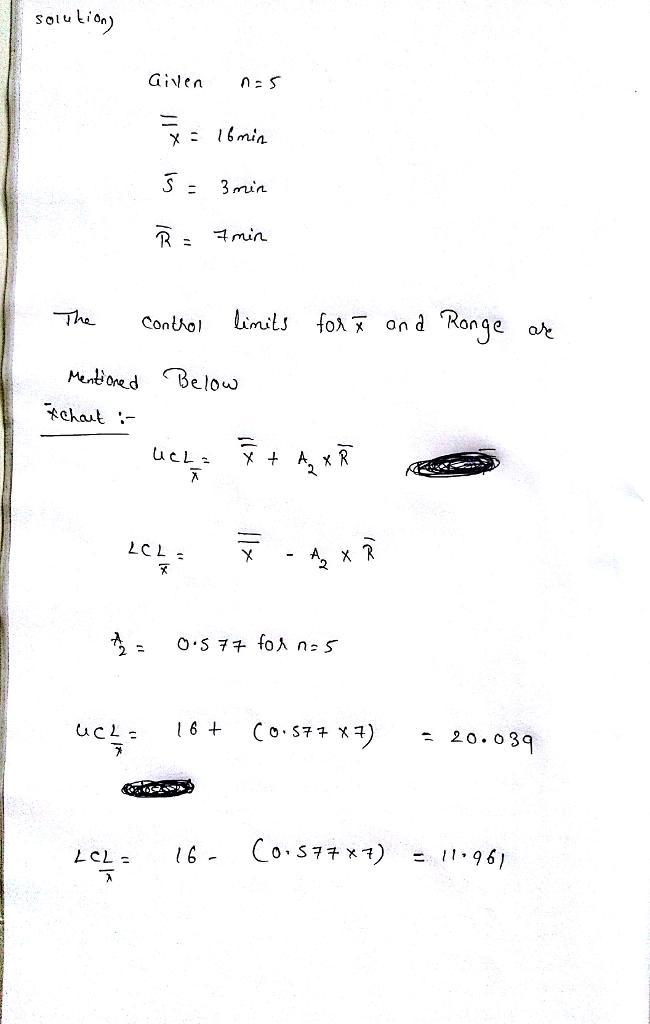 solution)
Given n=5
x̿ = 16min
s̄ = 3min
R̄ = 7min
The control limits for x̄ and Range are
Mentioned Below
x̄chart :-
UCL_x̄ = x̿ + A₂ x R̄
LCL_x̄ = x̿ - A₂ x R̄
A₂ = 0.577 for n=5
UCL_x̄ = 16 + (0.577 x 7) = 20.039
LCL_x̄ = 16 - (0.577 x 7) = 11.961